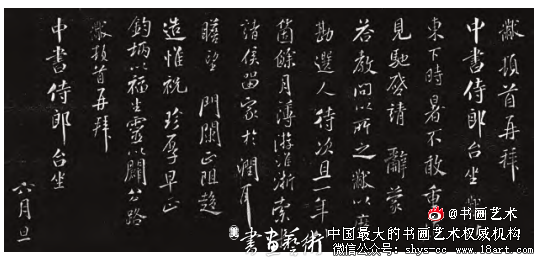 黻頓首再拜
中書侍郎台坐
東下時暑不敢重
見馳啓請 辭蒙
答教問以所之黻以磨
勘選人待次且一年
箇餘月薄游淮浙索
諸侯留家於潤耳
瞻望 門闌正阻趍
造惟祝 珍厚早正
鈞柄以福生靈以闢公路
黻頓首再拜
中書侍郎台坐
六月旦
書畫藝術
@书画艺术
中国最大的书画艺术权威机构
微信公众号: shys-cc www.18art.com